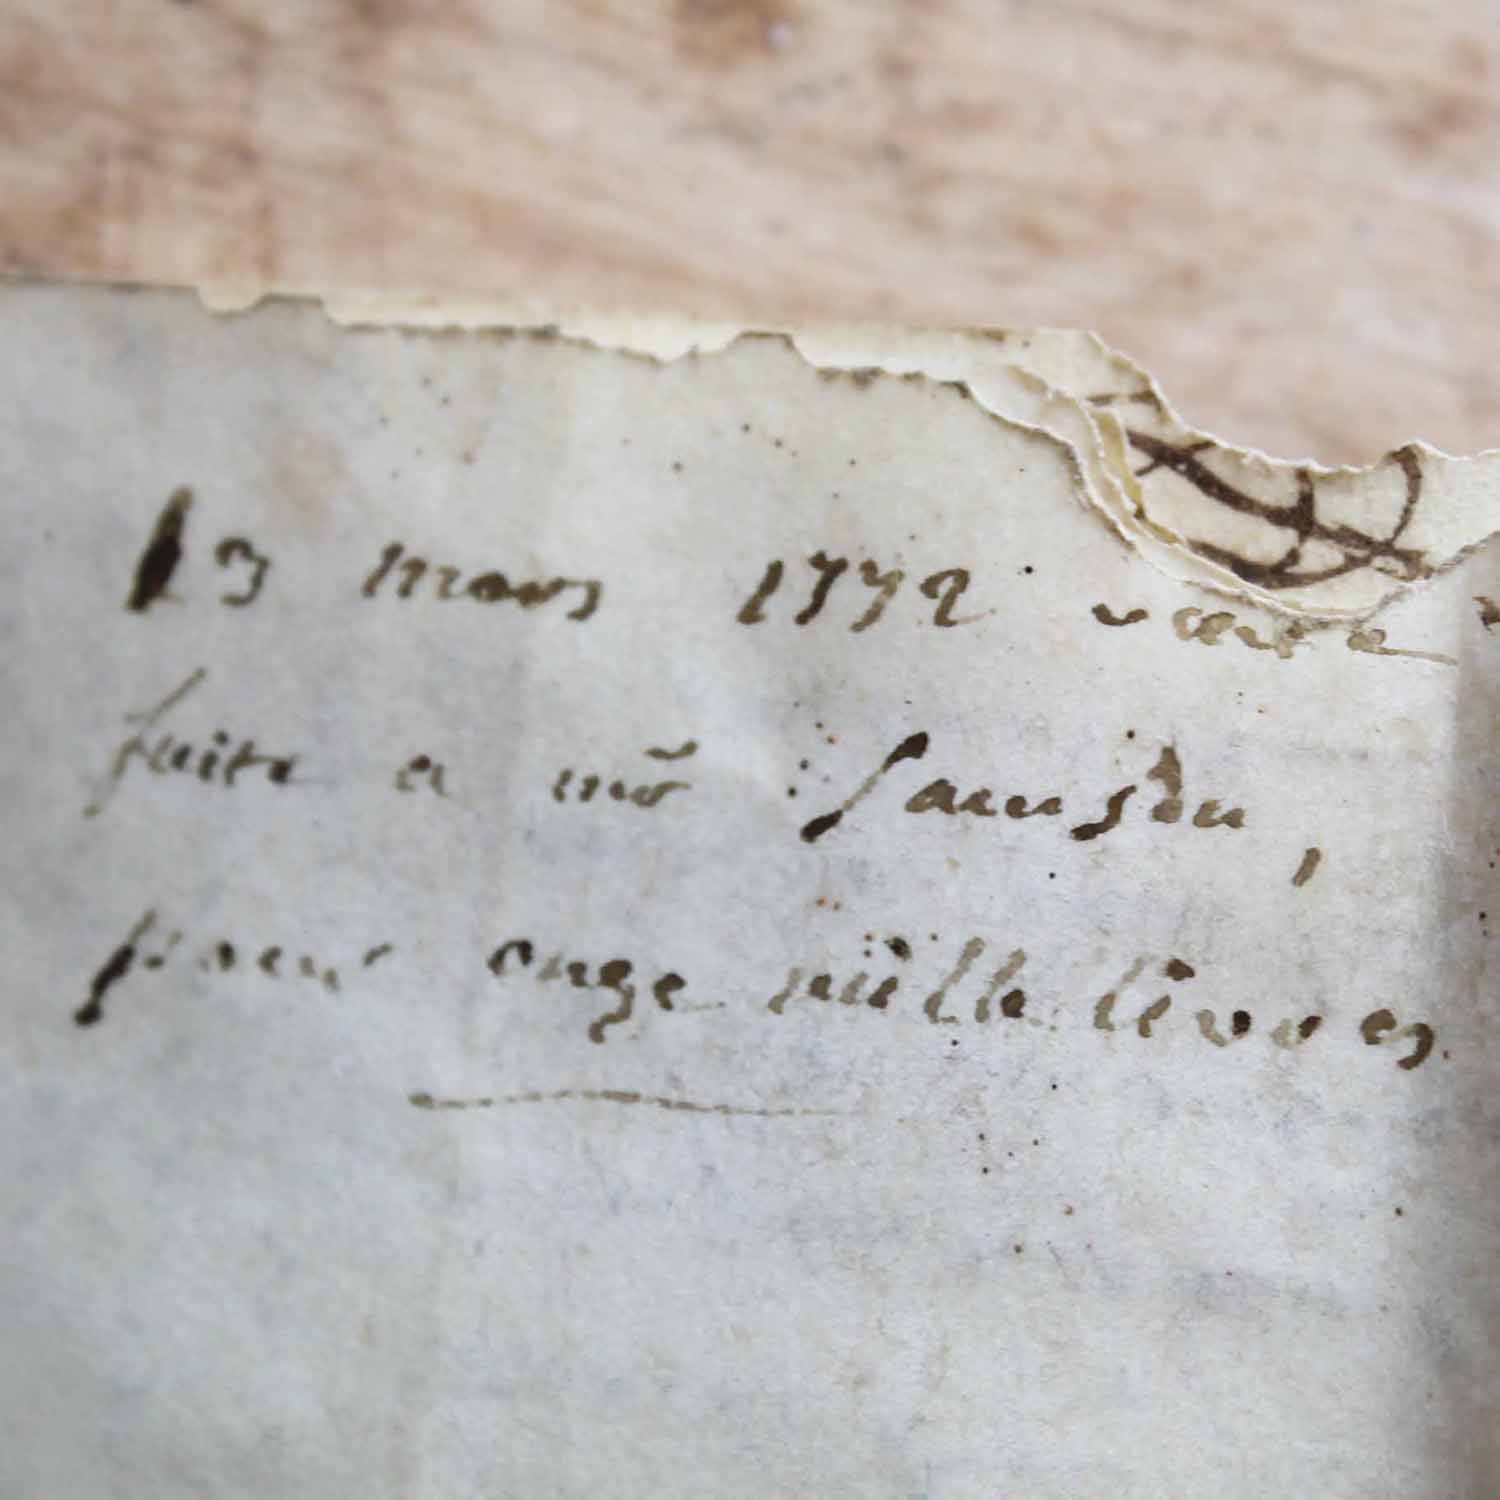 13 mars 1772 vante
faite a mr̃ Samson,
pour onze mille livres